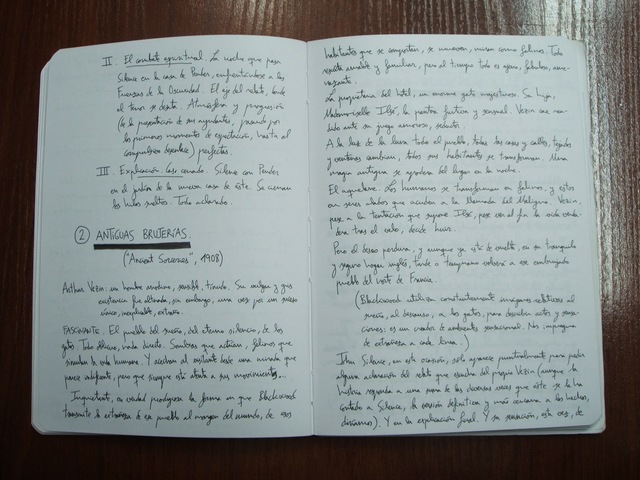 II. El combate espiritual. La noche que pasa
Silence en la casa de Pender, enfrentándose a las
Fuerzas de la Oscuridad. El eje del relato, donde
el terror se desata. Atmósfera y progresión
(de la presentación de sus ayudantes, pasando por
los primeros momentos de expectación, hasta el
compulsivo desenlace) perfectas.
III. Explicación. Caso cerrado. Silence con Pender
en el jardín de la nueva casa de éste. Se cierran
los hilos sueltos. Todo aclarado.
② ANTIGUAS BRUJERÍAS.
("Ancient Sorceries", 1908)
Arthur Vezin, un hombre anodino, sensible, tímido. Su vulgar y gris
existencia fue alterada, sin embargo, una vez por un suceso
único, inexplicable, extraño.
FASCINANTE. El pueblo del sueño, del eterno silencio, de los
gatos. Todo oblicuo, nada directo. Sombras que actúan, felinos que
simulan la vida humana. Y acechan al visitante desde una mirada que
parece indiferente, pero que siempre está atenta a sus movimientos...
Inquietante, en verdad prodigiosa la forma en que Blackwood
transmite la extrañeza de ese pueblo al margen del mundo, de sus
habitantes que se comportan, se mueven, miran como felinos. Todo
resulta amable y familiar, pero al tiempo todo es ajeno, fabuloso, amenazante.
La propietaria del hotel, un enorme gato majestuoso. Su hija,
Mademoiselle Ilsé, la pantera furtiva y sensual. Vezin cae rendido
ante su juego amoroso, seductor.
A la luz de la luna todo el pueblo, todas las casas y calles, tejados
y ventanas cambian, todos sus habitantes se transforman. Una
magia antigua se apodera del lugar en la noche.
El aquelarre. Los humanos se transforman en felinos, y éstos
en seres alados que acuden a la llamada del Maligno. Vezin,
pese a la tentación que supone Ilsé, pese ver al fin la vida verdadera
tras el velo, decide huir.
Pero el deseo perdura, y aunque ya está de vuelta, en su tranquilo
y seguro hogar inglés, tarde o temprano volverá a ese embrujado
pueblo del norte de Francia.
(Blackwood utiliza constantemente imágenes relativas al
sueño, al descanso, a los gatos, para describir actos y sensaciones:
es un creador de ambientes sensacional. Nos impregna
de extrañeza a cada línea.)
John Silence, en esta ocasión, sólo aparece puntualmente para pedir
alguna aclaración del relato que escucha del propio Vezin (aunque la
historia responda a una suma de las diversas veces que éste se la ha
contado a Silence, la versión definitiva y más cercana a los hechos,
diríamos). Y en la explicación final. Y su sensación, esta vez, de